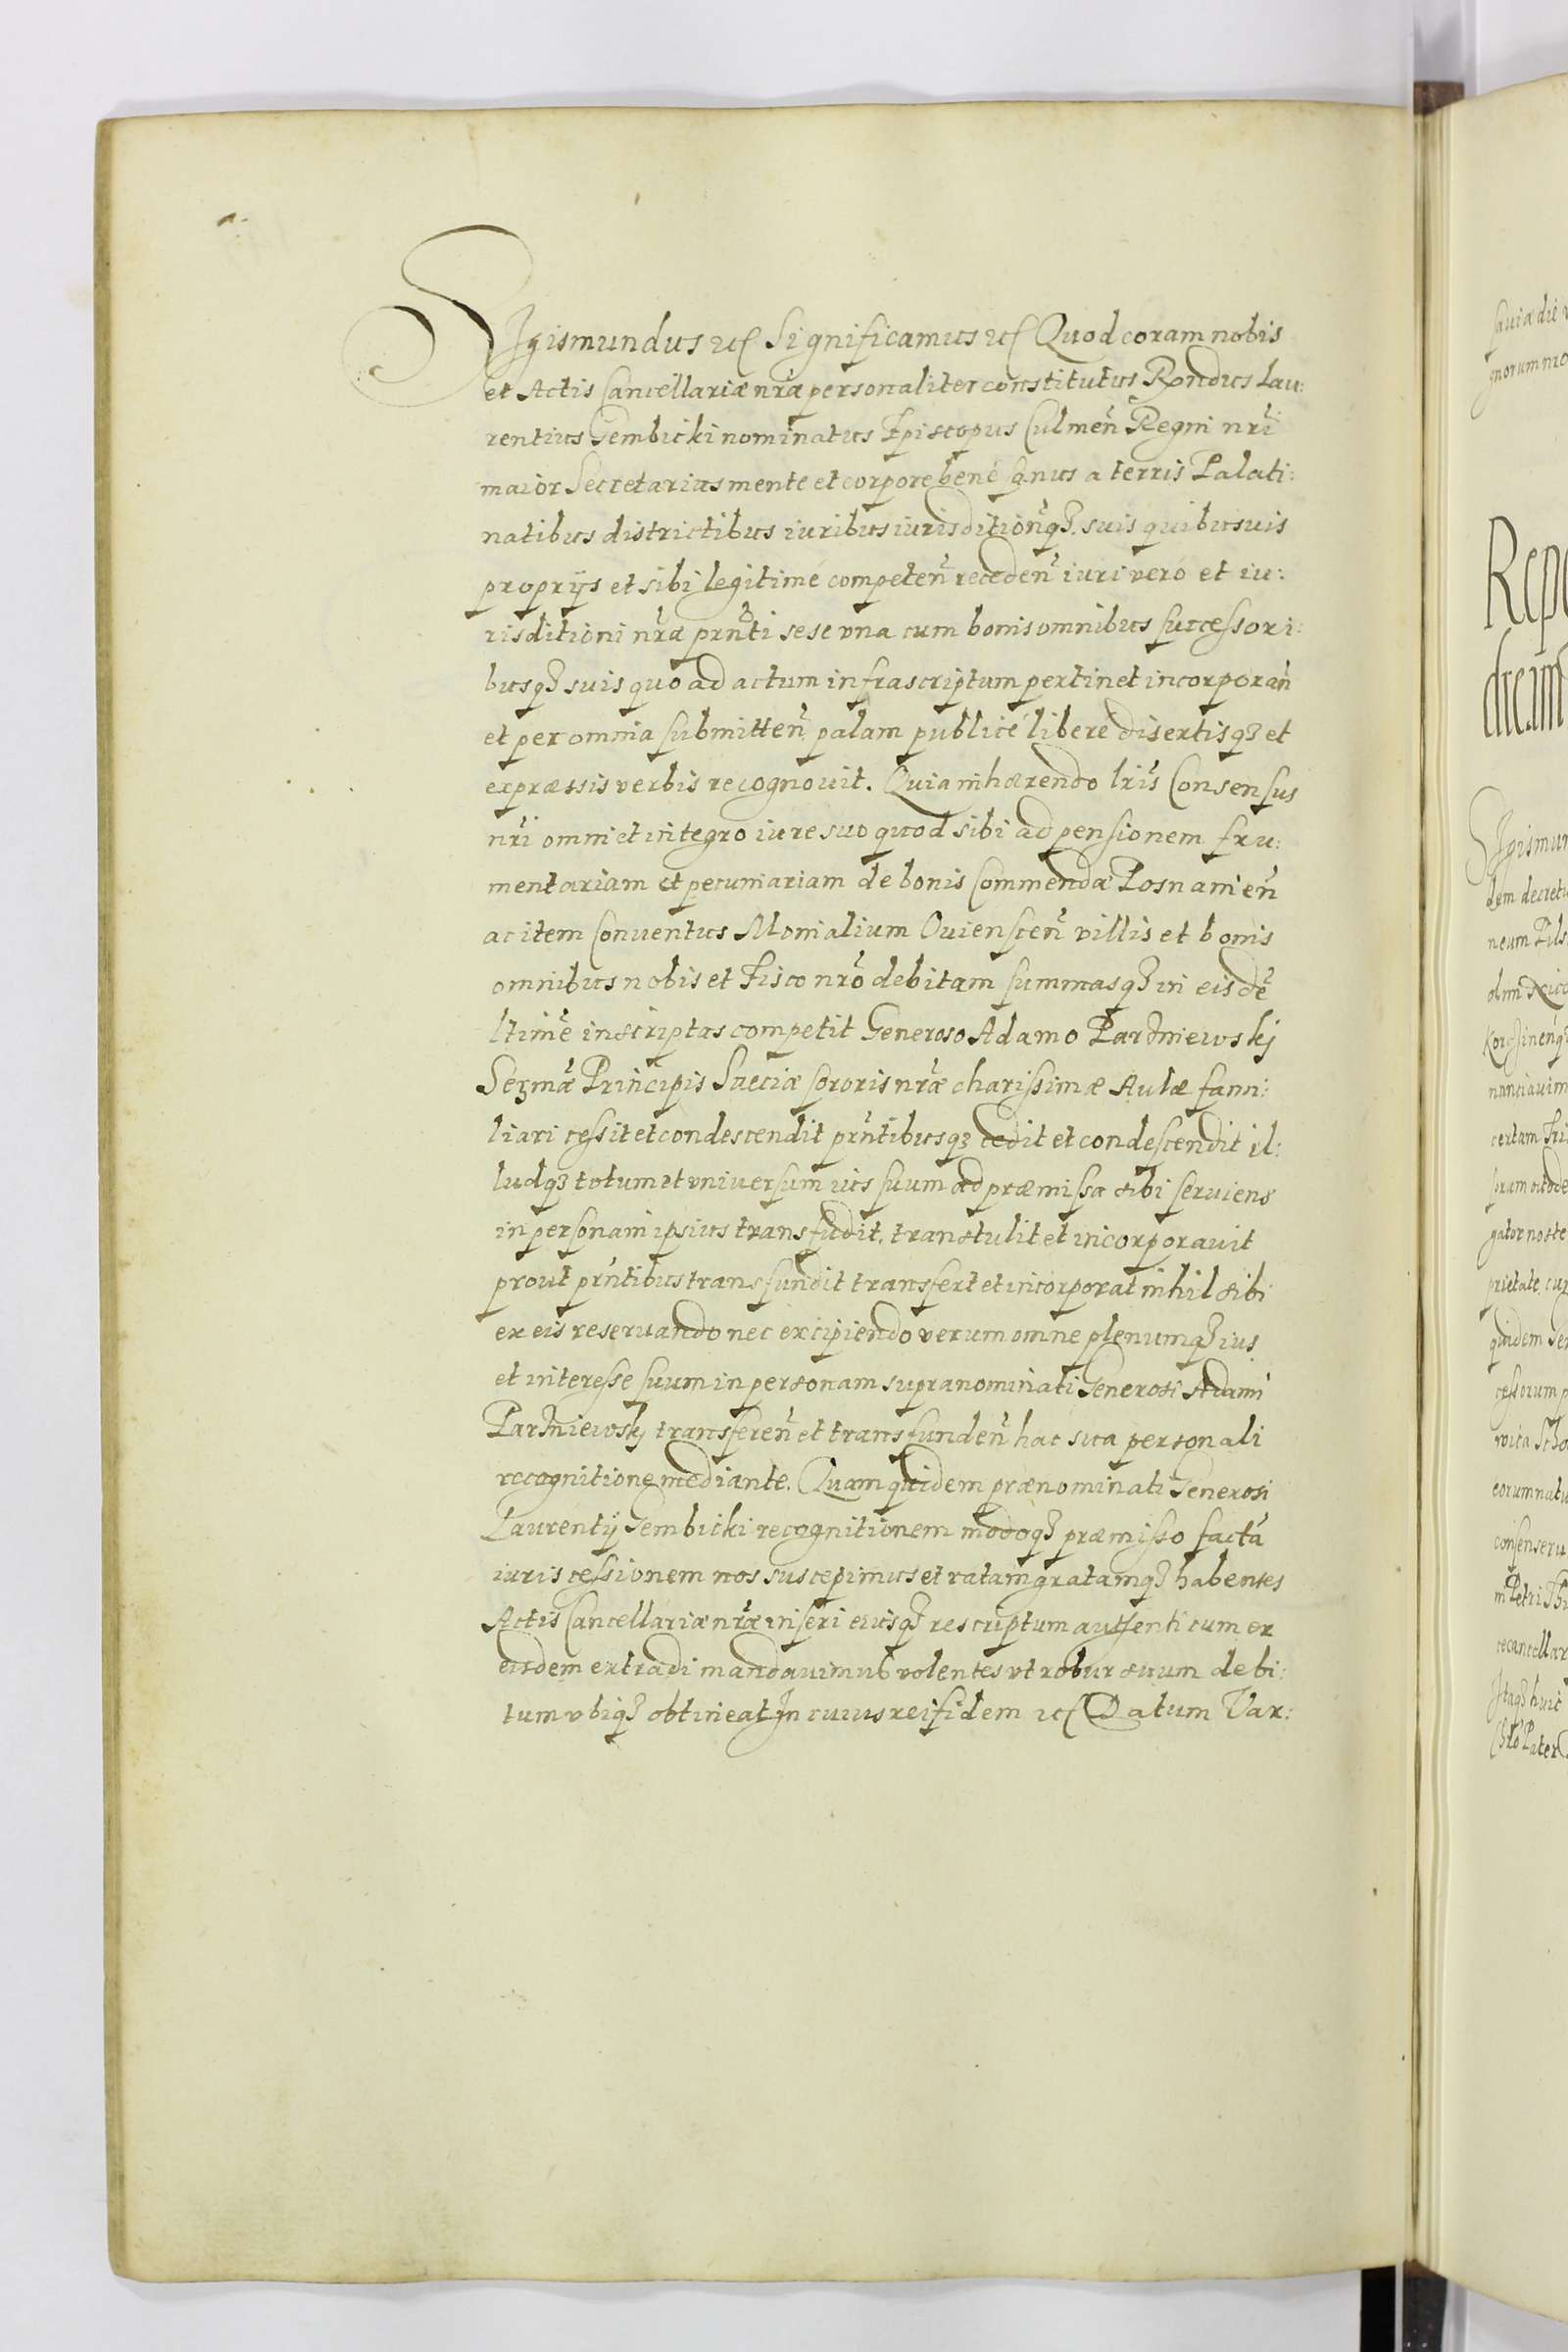 SIgismundus etc Significamus etc Quod coram nobis
et Actis Cancellariæ nr̃æ personaliter constitutus Rõndus Lau:
rentius Gembicki nominatus Episcopus Culmeñ Regni nr̃i
maior Secretarius mente et corpore bene sanus a terris Palati:
natibus districtibus iuribus iurisditioñq3 suis quibusuis
proprijs et sibi legitimé competeñ recedeñ iuri vero et iu:
risditioni nr̃æ prñti sese vna cum bonis omnibus successori:
busq3 suis quo ad actum infrascriptum pertinet incorporañ
et per omnia submitteñ palam publicé libere disertisq3 et
expræssis verbis recognouit. Quia inhærendo lr̃is Consensus
nr̃i omni et integro iure suo quod sibi ad pensionem fru:
mentariam et pecuniariam de bonis Commendæ Posnanieñ
ac item Conuentus Monialium Ouienseñ villis et bonis
omnibus nobis et Fisco nr̃o debitam summasq3 in eisdẽ
ltimẽ inscriptas competit Generoso Adamo Parzniewskj
Serm̃æ Principis Sueciæ sororis nr̃æ charissimæ Aulæ fami:
liari cessit et condescendit prñtibusq3 cedit et condescendit il:
ludq3 totum et vniuersum ius suum ad præmissa sibi seruiens
in personam ipsius transfudit, transtulit et incorporauit
prout prñtibus transfundit transfert et incorporat nihil sibi
ex eis reseruando nec excipiendo verum omne plenumq3 ius
et interesse suum in personam supranominati Generosi Adami
Parzniewskj transfereñ et transfundeñ hac sua personali
recognitione mediante. Quam quidem prænominati Generosi
Laurentij Gembicki recognitionem modoq3 præmisso factã
iuris cessionem nos suscepimus et ratam gratamq3 habentes
Actis Cancellariæ nr̃æ inseri eiusq3 rescriptum authenticum ex
eisdem extradi mandauimus volentes vt robur suum debi:
tum vbiq3 obtineat In cuius rei fidem etc Datum Var: